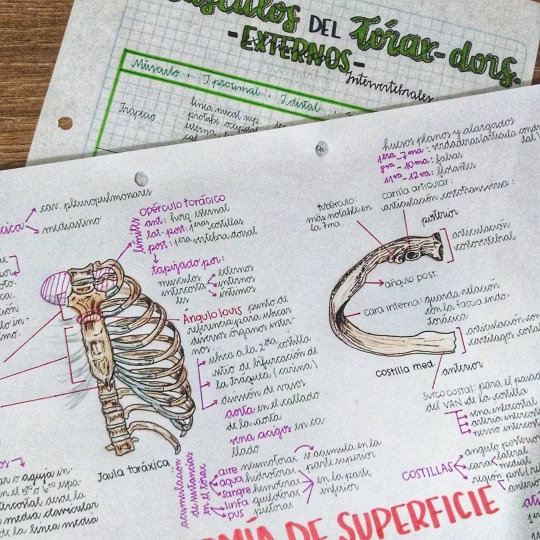 Músculos DEL Tórax-dors.
-EXTERNOS-
Intervertebrales
Músculo I proximal I distal
Trapecio
línea nucal sup
protub. occipital
externa
huesos planos y alargados
1era-7ma: verdaderas
8va-10ma: falsas
11va-12va: flotantes
cav. pleuropulmonares
mediastino
opérculo torácico
límites
ant: horq. esternal
lat-post: 1eras costillas
post: 1era vertebra dorsal
tapizado por:
músculos intercostales
externos
internos
íntimos
tubérculo:
más notable en
la 7ma.
carilla articular:
articulación costotransversa:
posterior
articulación
costovertebral
ángulo post.
cara interna: guarda relación
con la fascia endo-
torácica
costilla med.
anterior
articulación
surco costal: para el
del VAN de la costilla
vena intercostal
arteria intercostal
nervio intercostal
Ángulo louis punto de
referencia para ubicar
diversos órganos inter-
nos.
ubica la 2da. costilla
sitio de bifurcación de
la tráquea (carina)
división de vasos
aorta en el callado
de la aorta
vena acigos en ca
llado
Jaula torácica
acumulación
de sustancias
en el tórax
aire neumotórax
agua hidrotórax
sangre hemotórax
linfa quilotórax
pus piotórax
se acumula en la
parte superior
en la parte
inferior
COSTILLAS
ángulo posterior
cara lateral
medial
anterior
aguja in-
media clavicular
de la línea media
MÍA DE SUPERFICIE